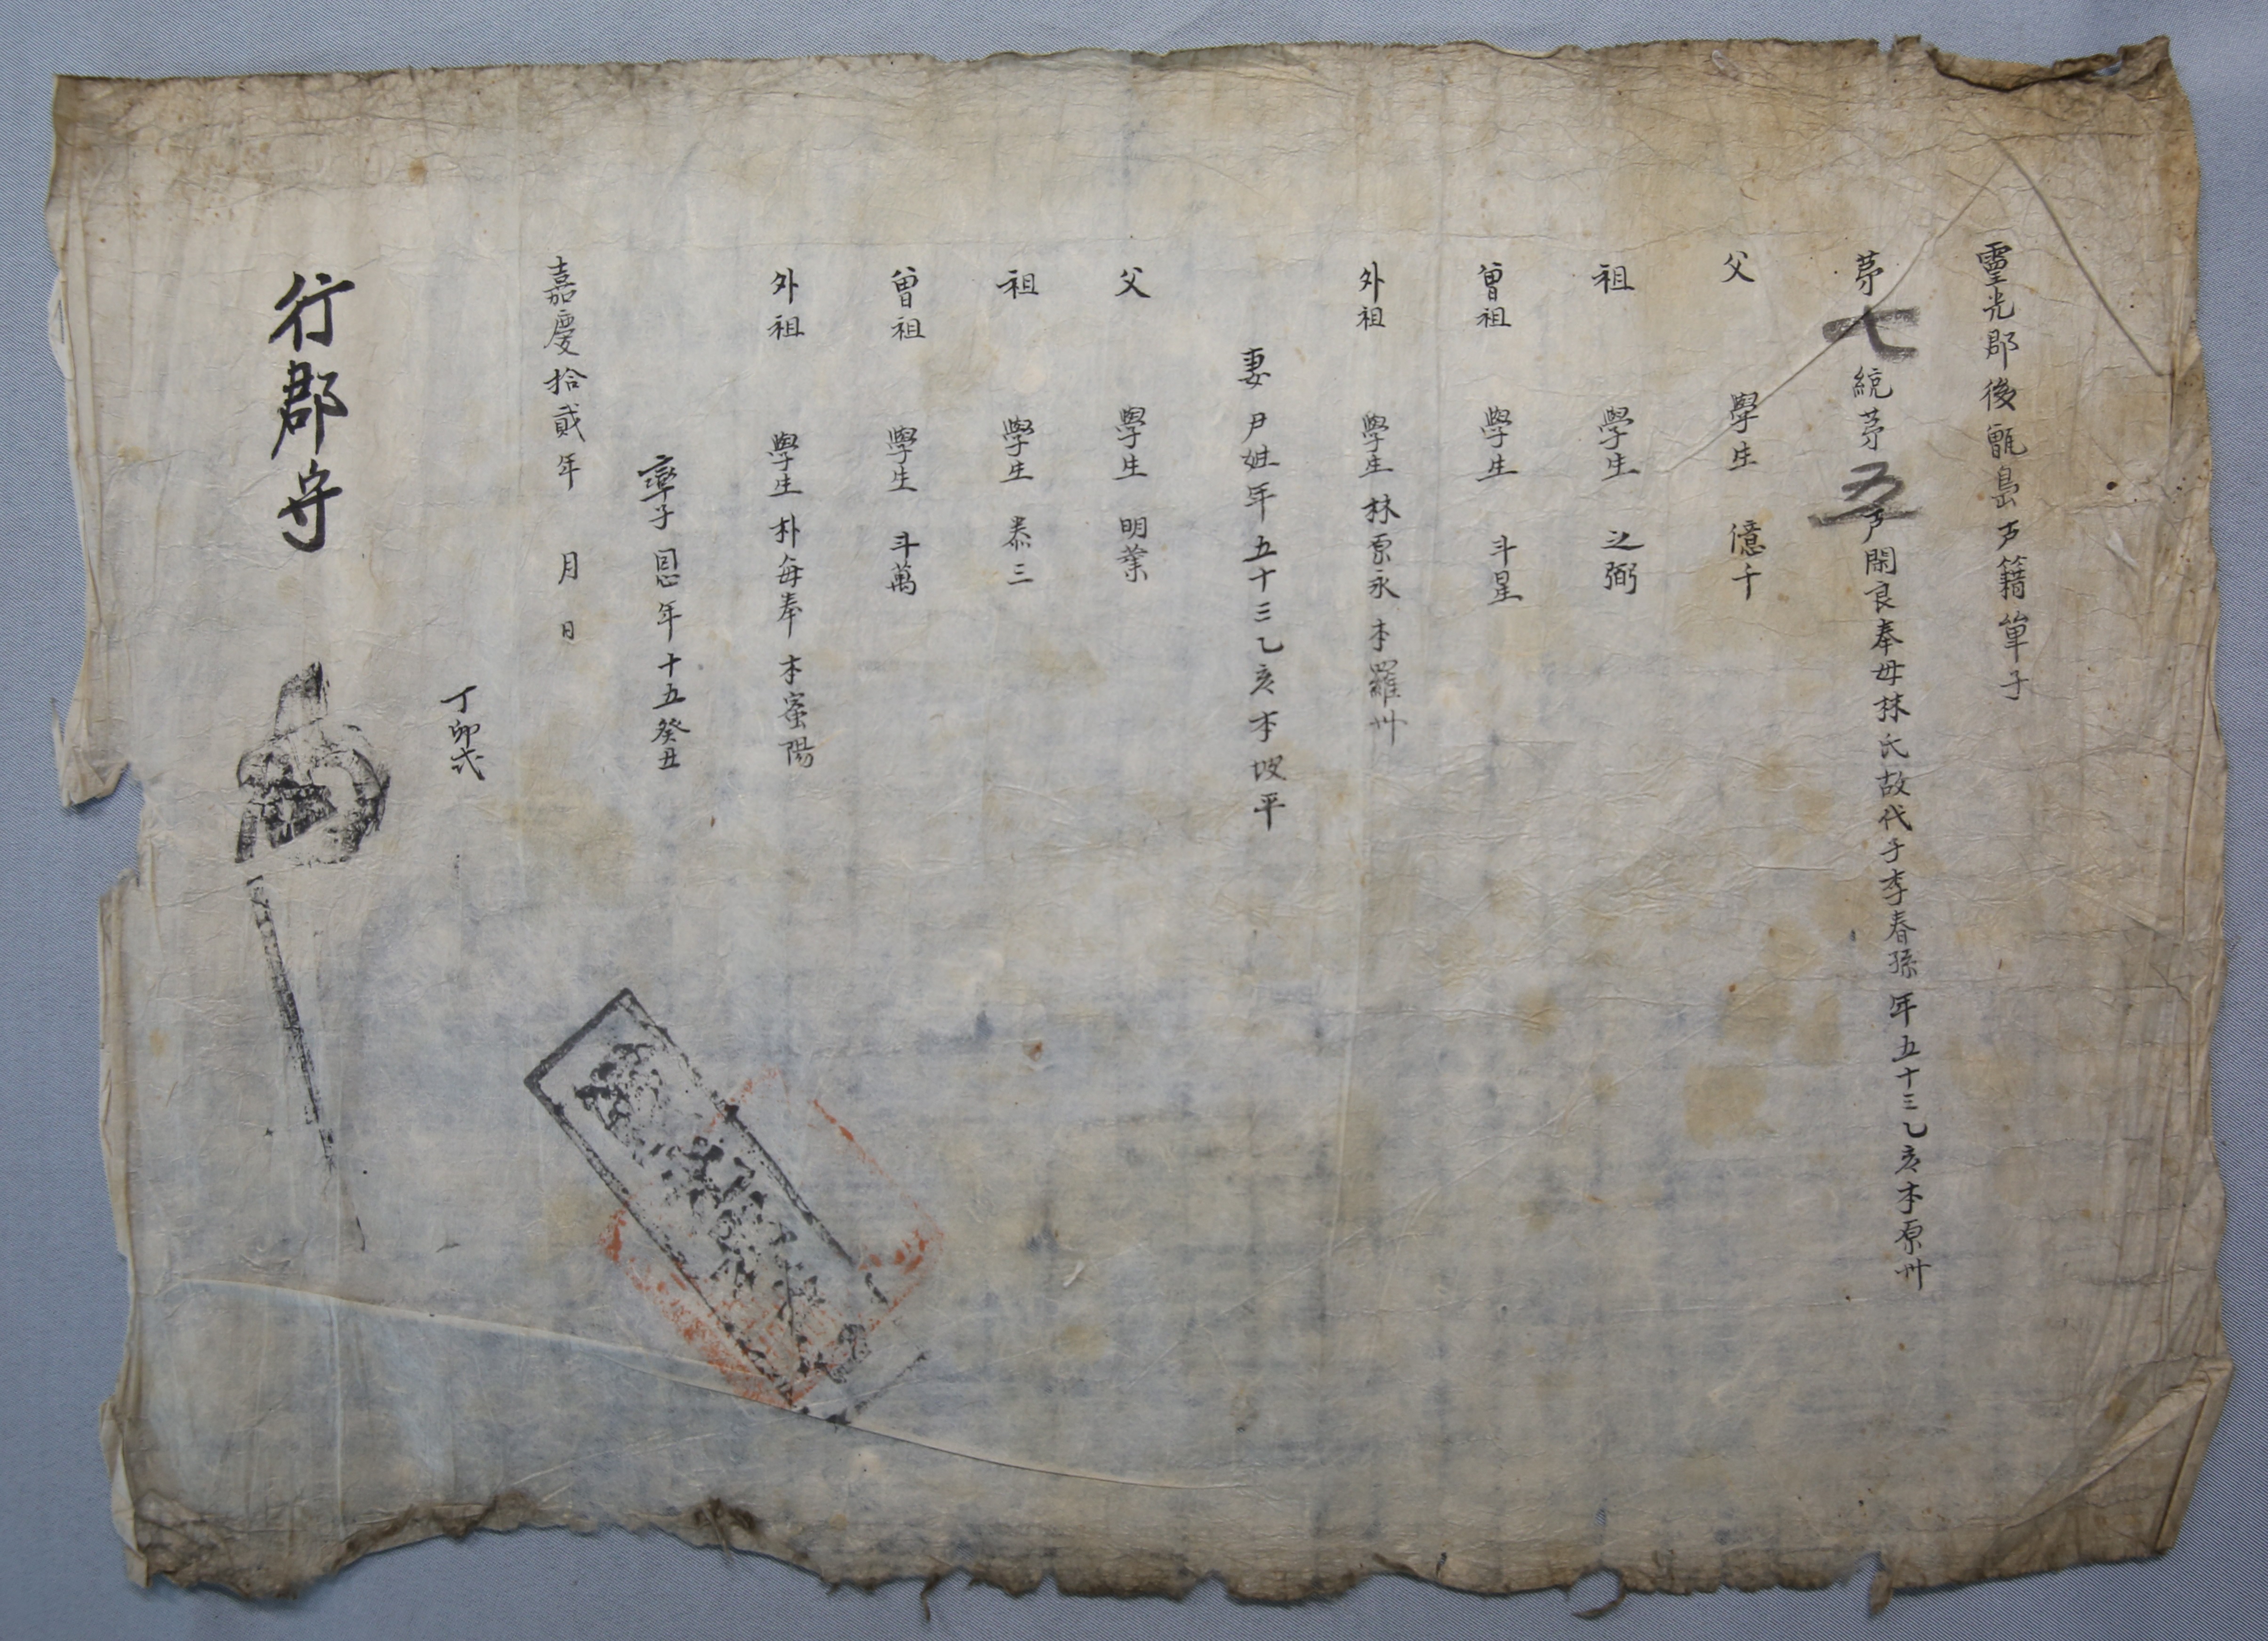 靈光郡後甑島戶籍單子
茅七統茅五戶閑良奉母林氏故代子李春孫年五十三乙亥本原州
父 學生 億千
祖 學生 之弼
曾祖 學生 斗星
外祖 學生林原永本羅州
妻尹姓年五十三乙亥本坡平
父 學生 明業
祖 學生 泰三
曾祖 學生 斗萬
外祖 學生朴每奉本密陽
率子 年十五癸丑
嘉慶拾貳年 月 日
丁卯式
行郡守